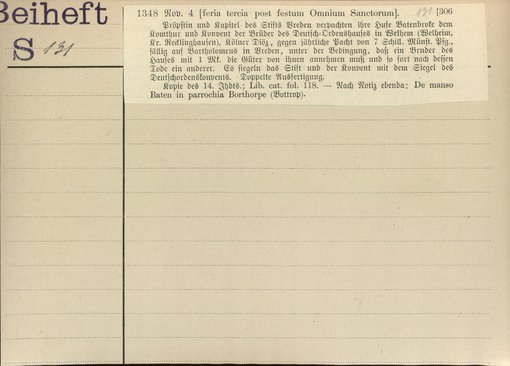 Beiheft
S 131
1348 Nov. 4 [feria tercia post festum Omnium Sanctorum]. 131 [306
Pröpstin und Kapitel des Stifts Vreden verpachten ihre Hufe Batenbroke dem
Komthur und Konvent der Brüder des Deutsch-Ordenshauses in Welhem (Welheim,
Kr. Recklinghausen), Kölner Diöz., gegen jährliche Pacht von 7 Schill. Münst. Pfg.,
fällig auf Bartholomews in Vreden, unter der Bedingung, daß ein Bruder des
Hauses mit 1 Mk. die Güter von ihnen annehmen muß und so fort nach dessen
Tode ein anderer. Es siegeln das Stift und der Konvent mit dem Siegel des
Deutschordenskonvents. Doppelte Ausfertigung.
Kopie des 14. Jhdts.; Lib. cat. fol. 118. — Nach Notiz ebenda; De manso
Baten in parrochia Borthorpe (Bottrop).